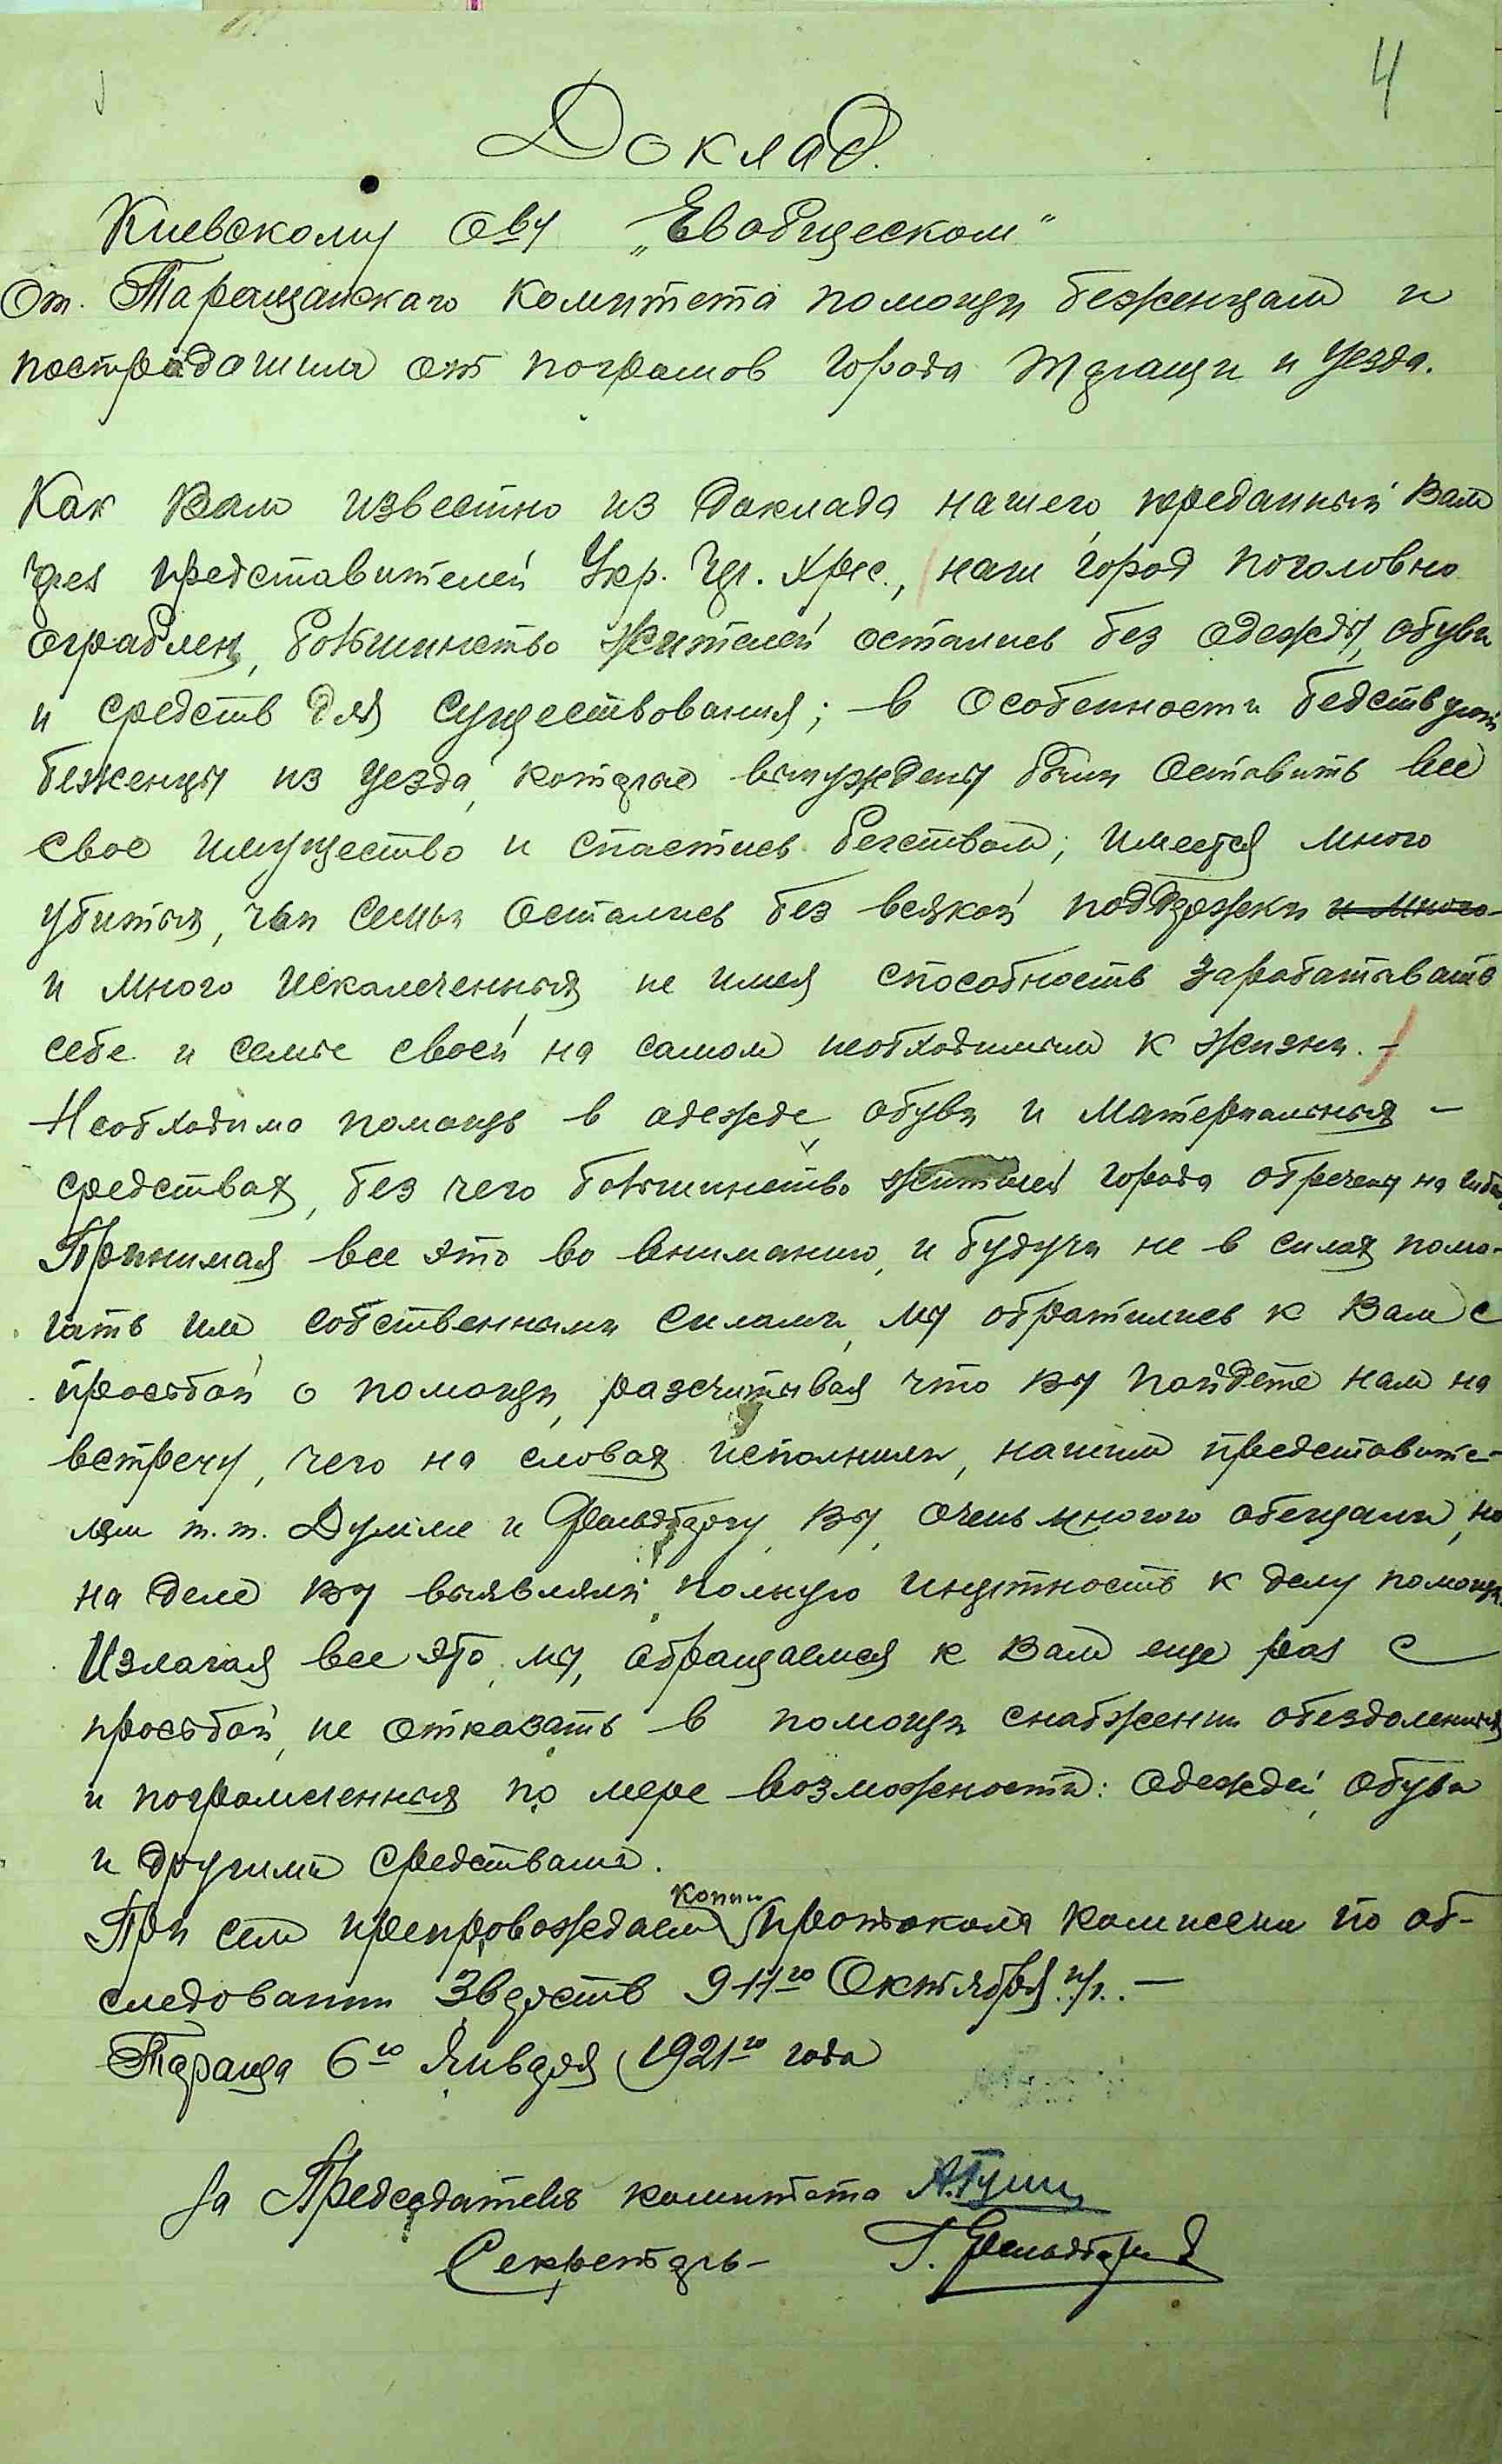 4
Доклад.
Киевскому О⁠ву „Евобщеском"
От. Таращанскаго Комитета помощи беженцам и
пострадашим от погромов города Таращи и уезда.
Как Вам известно из Доклада нашего, преданный Вам
через представителей Укр. Кр. Хрес., наш город поголовно
ограблен, большинство жителей остались без одежды, обуви
и средств для существования; в особенности бедствуют
беженцы из уезда, которые вынуждены были оставить все
свое имущество и спастись бегством; имеется много
убитых, чьи семьи остались без всякой поддержки и много
и много искалеченных, не имея способность зарабатывать
себе и семье своей на самом необходимым к жизни. –
Необходимо помощь в одежде, обуви и материальных –
средствах, без чего большинство жителей города обречены на
Принимая все это во внимание, и будучи не в силах помо-
гать им собственными силами, мы обратились к Вам с
просьбой о помощи, разсчитывая что вы пойдете нам на
встречу, чего на словах исполнили, нашим представите-
лям т.т. Думме и Фельдбарду, вы, очень многого обещали, но
на деле вы выявляли полную инертность к делу помощи.
Излагая все это, мы, обращаемся к Вам еще раз с
просьбой, не отказать в помощи снабжении обездоленных
и погромленных по мере возможности: одеждей, обуви
и другими средствами.
При сем препровождаем копии протокола комиссии по об-
следовании зверств 9-11го Октября п/г. –
Тараща 6го Января 1921го года
За Председатель комитета
Секретарь –